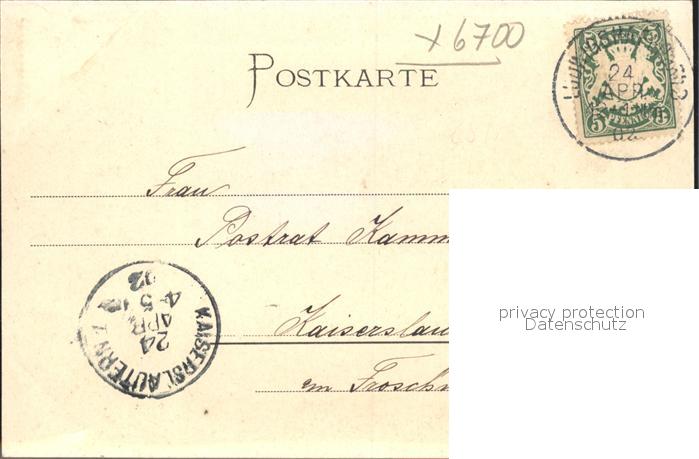 x 6700
POSTKARTE
24
APR
02
5 PFENNIG 5
Frau
Postrat Kamm
Kaiserslau
am Frosch
KAISERSLAUTERN 1.
24
APR
4-5
02
privacy protection
Datenschutz